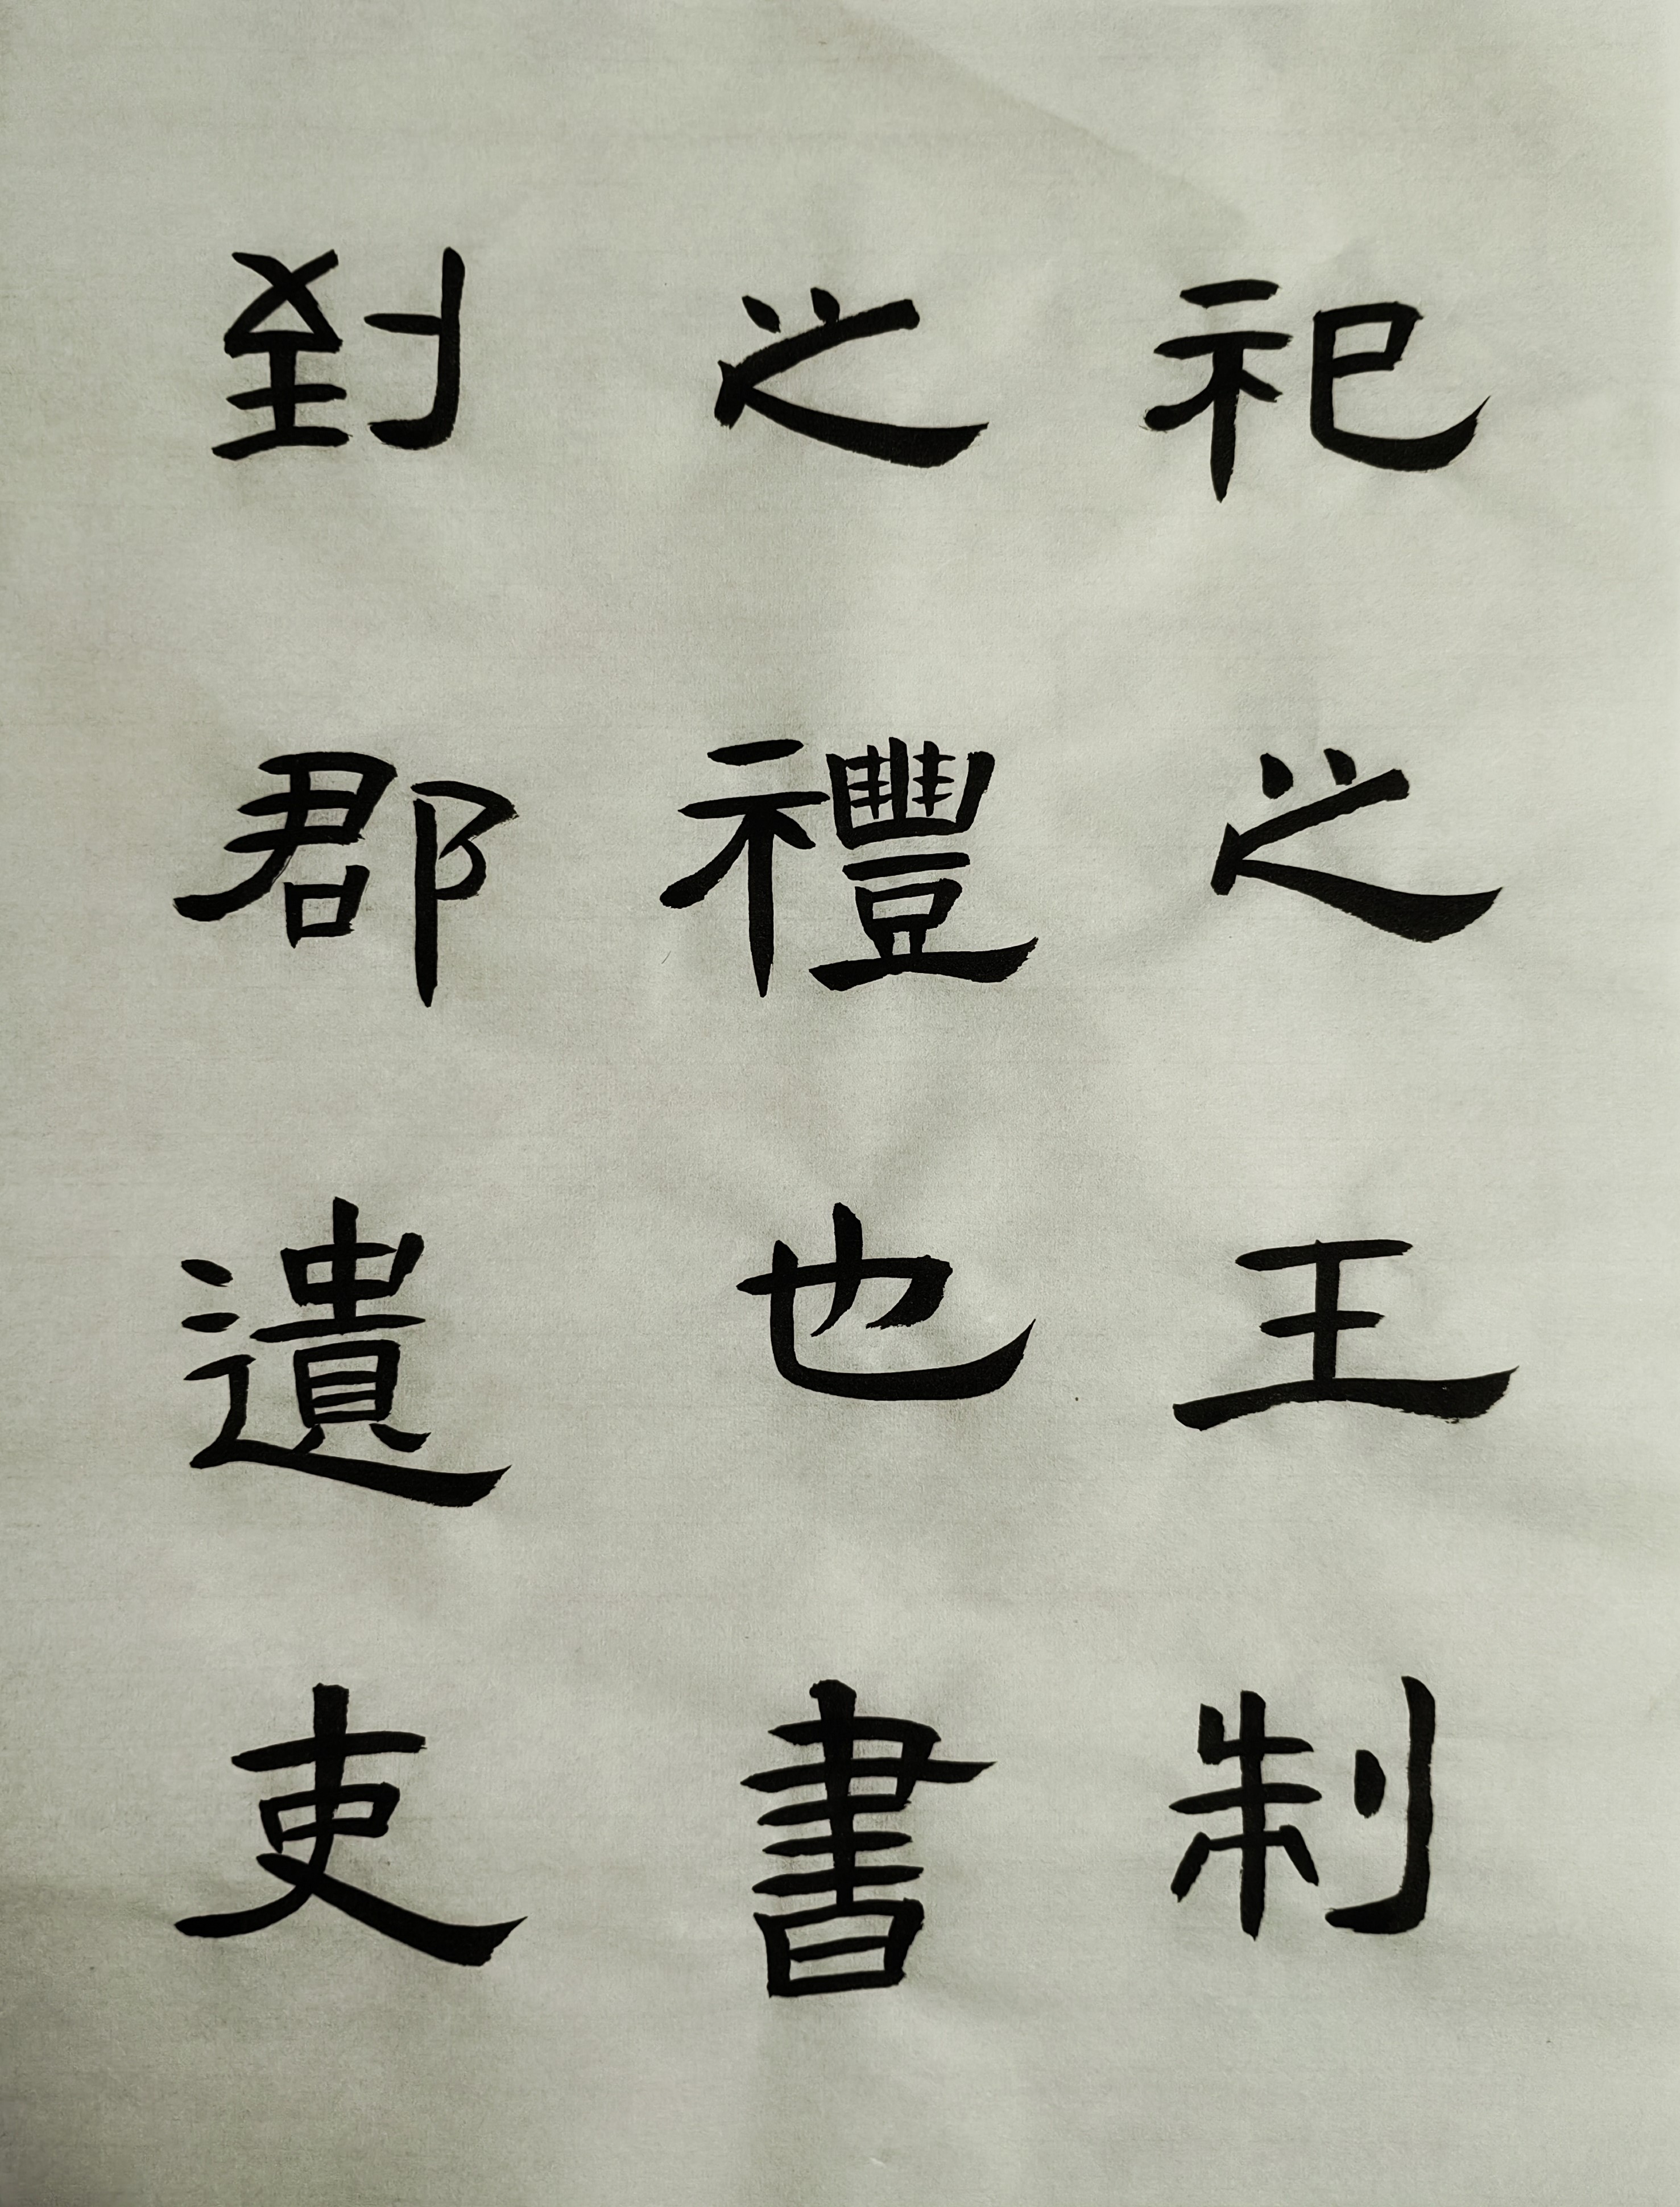 祀之王制
之禮也書
到郡遣吏